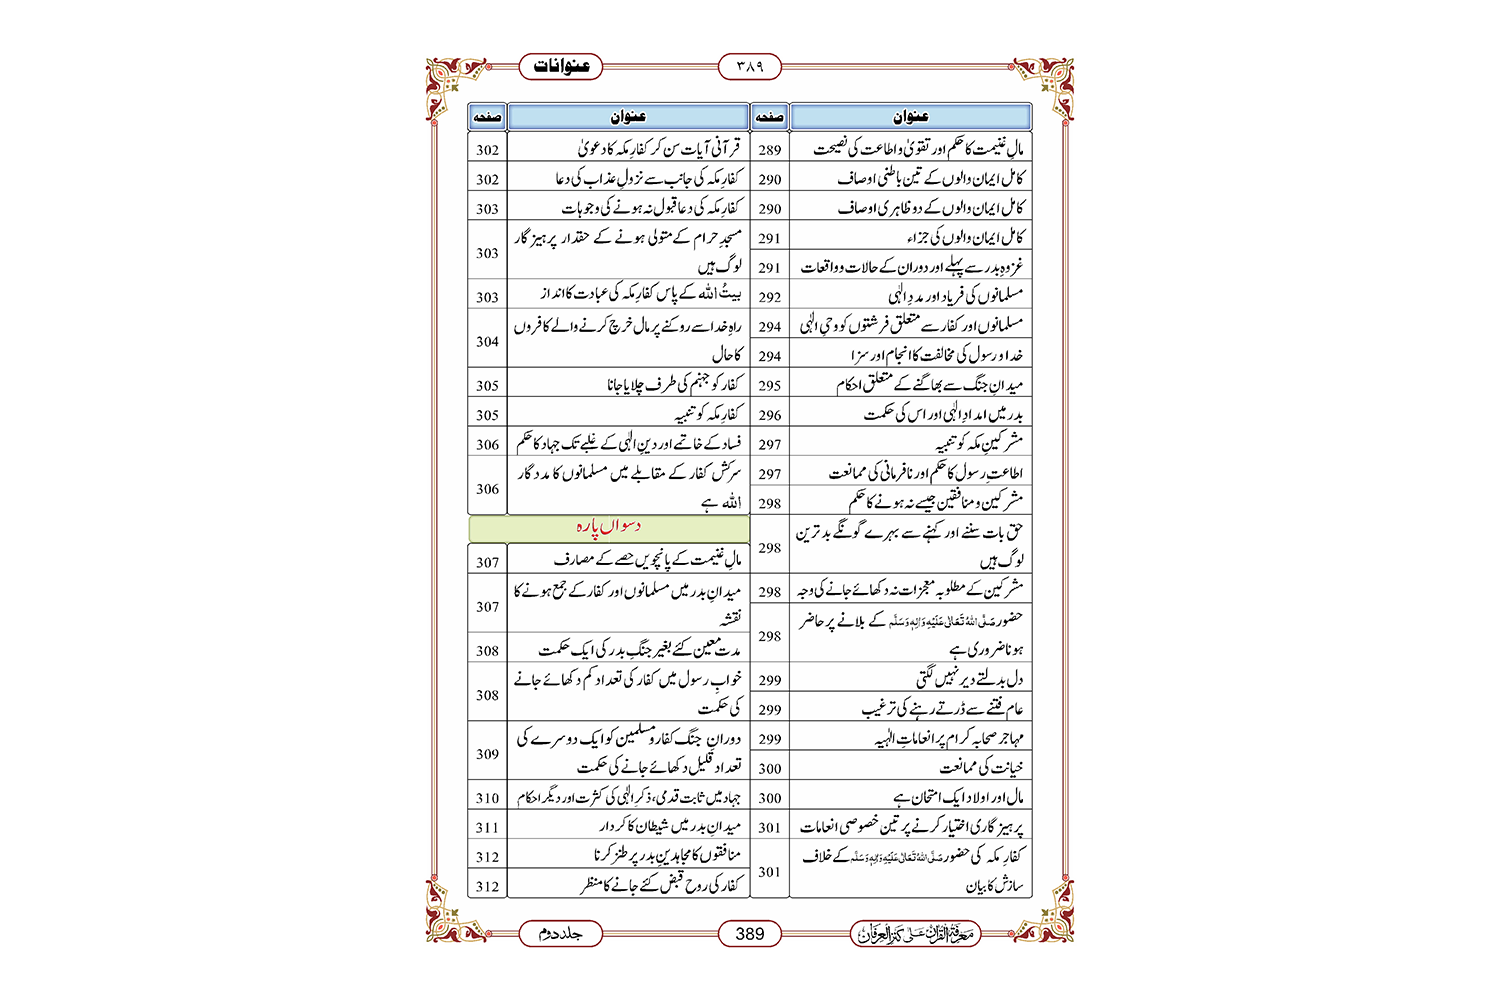 عنوانات
۳۸۹
عنوان صفحہ
مالِ غنیمت کا حکم اور تقویٰ و اطاعت کی نصیحت 289
کامل ایمان والوں کے تین باطنی اوصاف 290
کامل ایمان والوں کے دو ظاہری اوصاف 290
کامل ایمان والوں کی جزاء 291
غزوۂ بدر سے پہلے اور دوران کے حالات وواقعات 291
مسلمانوں کی فریاد اور مددِ الٰہی 292
مسلمانوں اور کفار سے متعلق فرشتوں کو وحیِ الٰہی 294
خدا و رسول کی مخالفت کا انجام اور سزا 294
میدانِ جنگ سے بھاگنے کے متعلق احکام 295
بدر میں امدادِ الٰہی اور اس کی حکمت 296
مشرکینِ مکہ کو تنبیہ 297
اطاعتِ رسول کا حکم اور نافرمانی کی ممانعت 297
مشرکین و منافقین جیسے نہ ہونے کا حکم 298
حق بات سننے اور کہنے سے بہرے گونگے بدترین
لوگ ہیں 298
مشرکین کے مطلوبہ معجزات نہ دکھائے جانے کی وجہ 298
حضور صَلَّی اللهُ تَعَالٰی عَلَیْهِ وَاٰلِهٖ وَسَلَّم کے بلانے پر حاضر
ہونا ضروری ہے 298
دل بدلتے دیر نہیں لگتی 299
عام فتنے سے ڈرتے رہنے کی ترغیب 299
مہاجر صحابہ کرام پر انعاماتِ الٰہیہ 299
خیانت کی ممانعت 300
مال اور اولاد ایک امتحان ہے 300
پرہیزگاری اختیار کرنے پر تین خصوصی انعامات 301
کفارِ مکہ کی حضور صَلَّی اللهُ تَعَالٰی عَلَیْهِ وَاٰلِهٖ وَسَلَّم کے خلاف
سازش کا بیان 301
عنوان صفحہ
قرآنی آیات سن کر کفارِ مکہ کا دعویٰ 302
کفارِ مکہ کی جانب سے نزولِ عذاب کی دعا 302
کفارِ مکہ کی دعا قبول نہ ہونے کی وجوہات 303
مسجدِ حرام کے متولی ہونے کے حقدار پرہیزگار
لوگ ہیں 303
بیتُ اللہ کے پاس کفارِ مکہ کی عبادت کا انداز 303
راہِ خدا سے روکنے پر مال خرچ کرنے والے کافروں
کا حال 304
کفار کو جہنم کی طرف چلایا جانا 305
کفارِ مکہ کو تنبیہ 305
فساد کے خاتمے اور دینِ الٰہی کے غلبے تک جہاد کا حکم 306
سرکش کفار کے مقابلے میں مسلمانوں کا مددگار
اللہ ہے 306
دسواں پارہ
مالِ غنیمت کے پانچویں حصے کے مصارف 307
میدانِ بدر میں مسلمانوں اور کفار کے جمع ہونے کا
نقشہ 307
مدت معین کئے بغیر جنگِ بدر کی ایک حکمت 308
خوابِ رسول میں کفار کی تعداد کم دکھائے جانے
کی حکمت 308
دورانِ جنگ کفار و مسلمین کو ایک دوسرے کی
تعداد قلیل دکھائے جانے کی حکمت 309
جہاد میں ثابت قدمی، ذکرِ الٰہی کی کثرت اور دیگر احکام 310
میدانِ بدر میں شیطان کا کردار 311
منافقوں کا مجاہدینِ بدر پر طنز کرنا 312
کفار کی روح قبض کئے جانے کا منظر 312
معرفۃ القرآن علیٰ کنز العرفان
389
جلد دوم